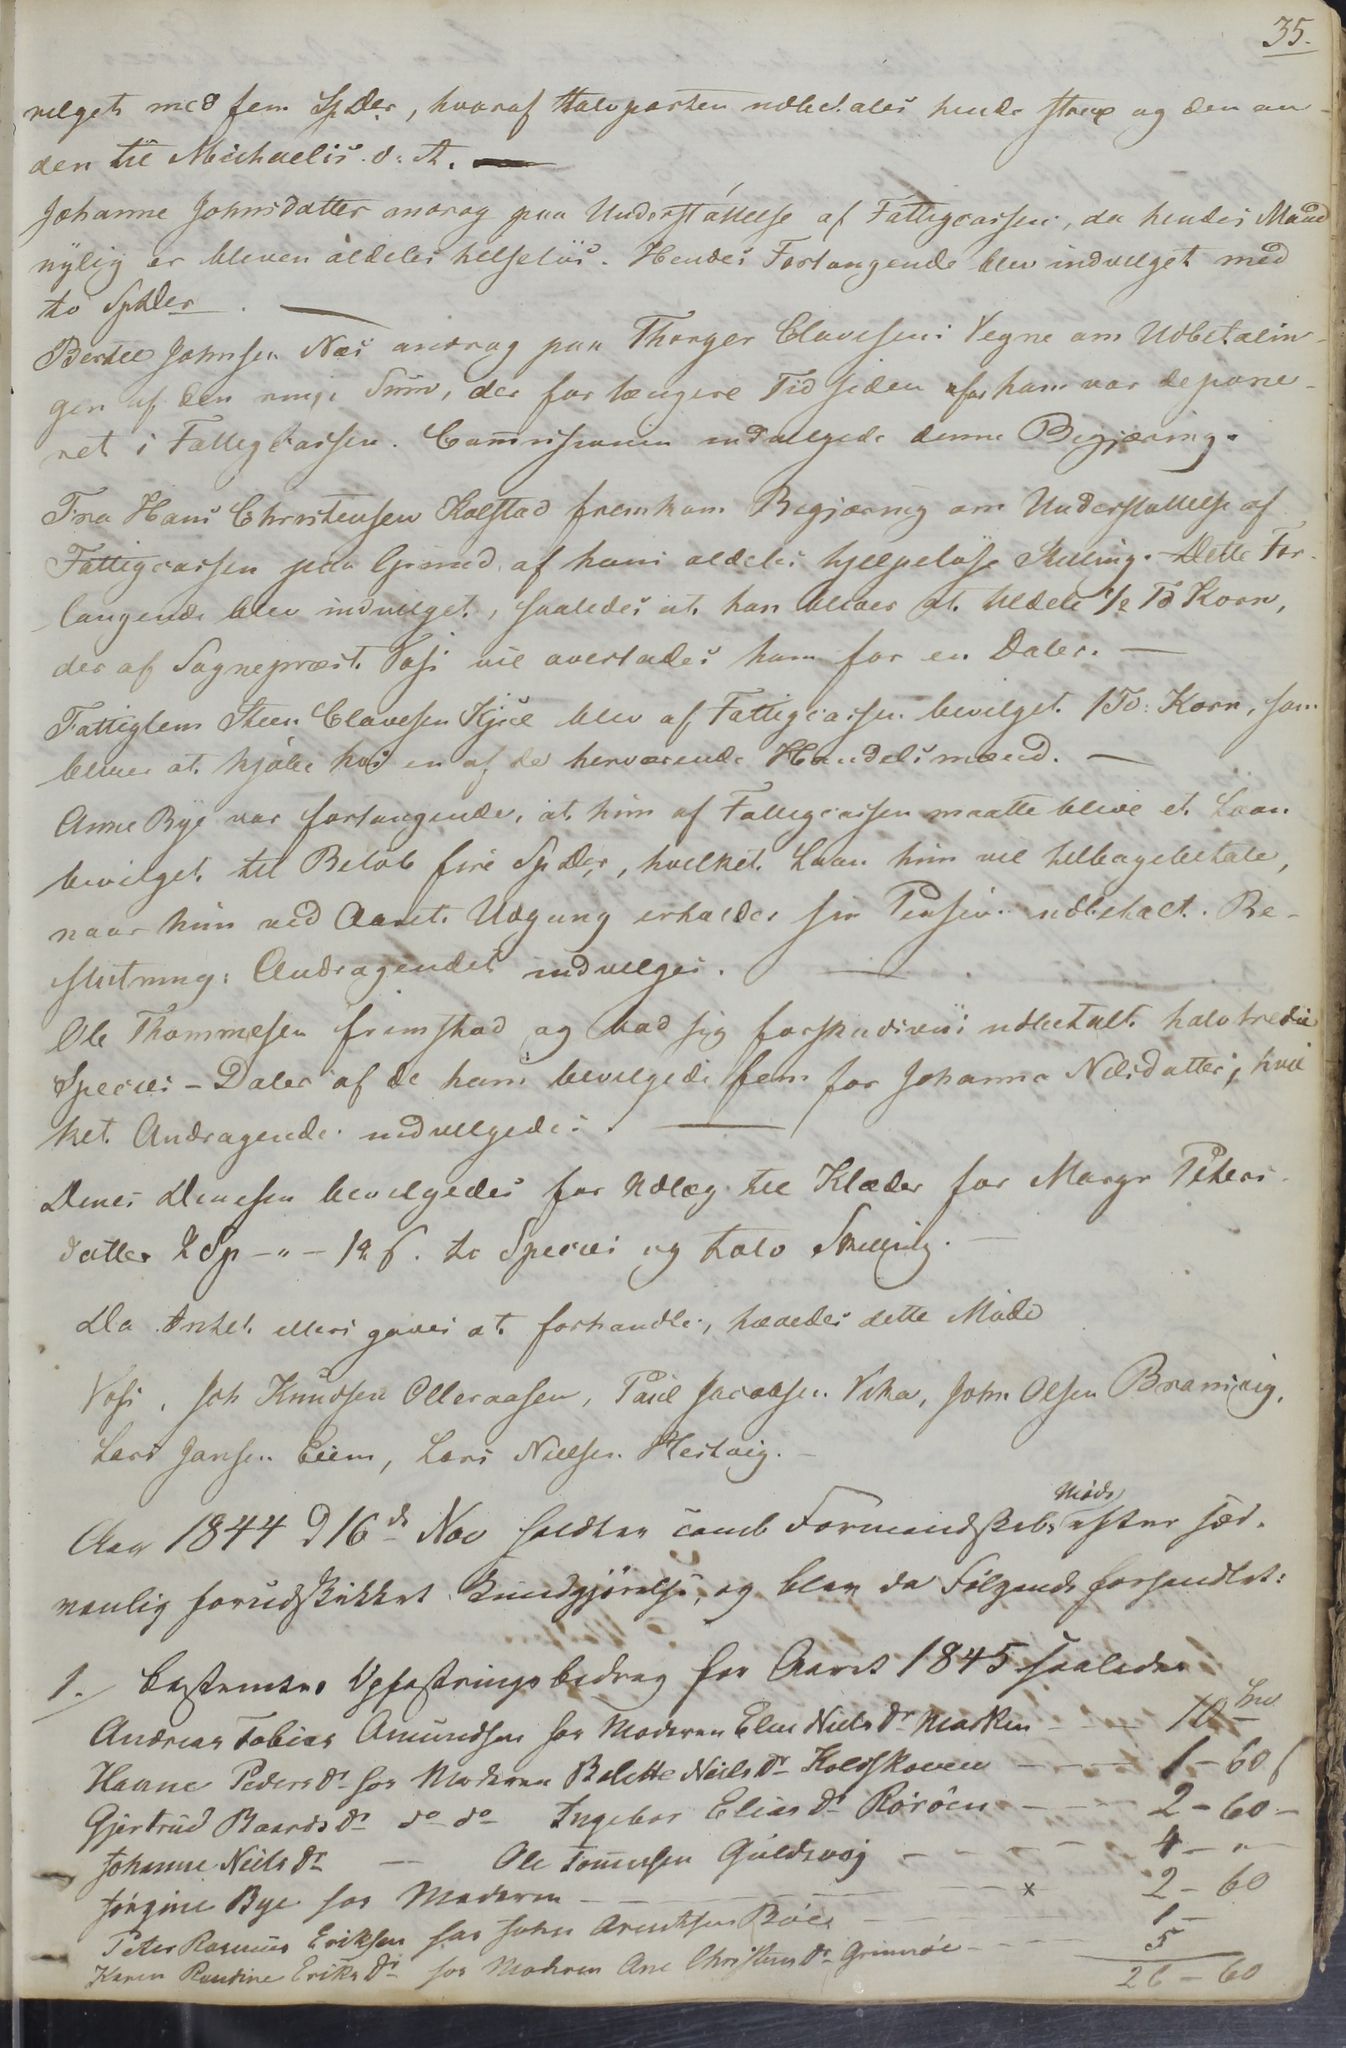 35.
vilget med fem Spdlr, hvoraf Halvparten udbetales hende strax og den an-
den til Michaelis d: A.
Johanne Johnsdatter androg paa Understøttelse af Fattigcassen, da hendes Mand
nylig er bleven aldeles helseløs. Hendes Forlangende blev indvilget med
to Spdler.
Bertel Johnsen Næs androg paa Thorger Clavesens Vegne om Udbetalin-
gen af den Sum, der for længere Tid siden for ham var depone-
ret i Fattigcassen. Commissionen indvilgede denne Begjæring.
Fra Hans Christensen Kolstad fremkom Begjæring om Understøttelse af
Fattigcassen paa Grund af hans aldeles hjelpeløse Stilling. Dette For-
langende blev indvilget, saaledes at han bliver at tildele 1/2 Td Korn,
der af Sognepræst Voss vil overlades ham for en Daler.
Fattiglem Steen Clavesen blev af Fattigcassen bevilget 1 Td: Korn, som
bliver at kjøbe hos en af de herværende Handelsmænd.
Anne Bye var forlangende, at hun af Fattigcassen maatte blive et Laan
bevilget til Beløb fire Spdlr, hvilket Laan hun vil tilbagebetale,
naar hun ved Aarets Udgang erholder sin Pension udbetalt. Be-
slutning: Andragendet indvilges.
Ole Thommesen fremstod og bad sig forskudsviis udbetalt halvtredie
Species-Daler af de ham bevilgede fem for Johanna Nilsdatter, hvil
ket Andragende indvilgedes.
Dines Dinesen bevilgedes for Udlæg til Klæder for Margr Peters-
datter 2 Sp - " - 12 ß. to Species og tolv Skilling.
Da Intet ellers gaves at forhandle, hævedes dette Møde
Voss, Joh Knudsen Olleraasen, Paul Jacobsen Vika, John Olsen
Lars Jansen Eiem, Lars Nielsen Hestvig.
Aar 1844 d 16de Nov holdtes samlt Formandskabs Møde efter sæd-
vanlig forudskikket Kundgjørelse, og blev da Følgende forhandlet:
1. bestemtes Opfostringsbedrag for Aaret 1845 saaledes
Andreas Tobias Amundsen hos Moderen Elen Niels Dr Marken - - 10
Hanne Peders Dr hos Moderen Bolette Neils Dr Koldskoven - - - 1 - 60 ß
Gjertrud Baards Dr do do Ingebor Elias Dr Rørøen - - - 2 - 60 -
Johanne Neils Dr — Ole Tommesen Guldsvog - - - - 4 - " -
Jørgine Bye hos Moderen - - - x 2 - 60
Peter Rasmus Eriksen hos John Arentsen - - - 1 -
Karen Randine Eriks Dr hos Moderen Ane Christens Dr - - - 5
26 - 60